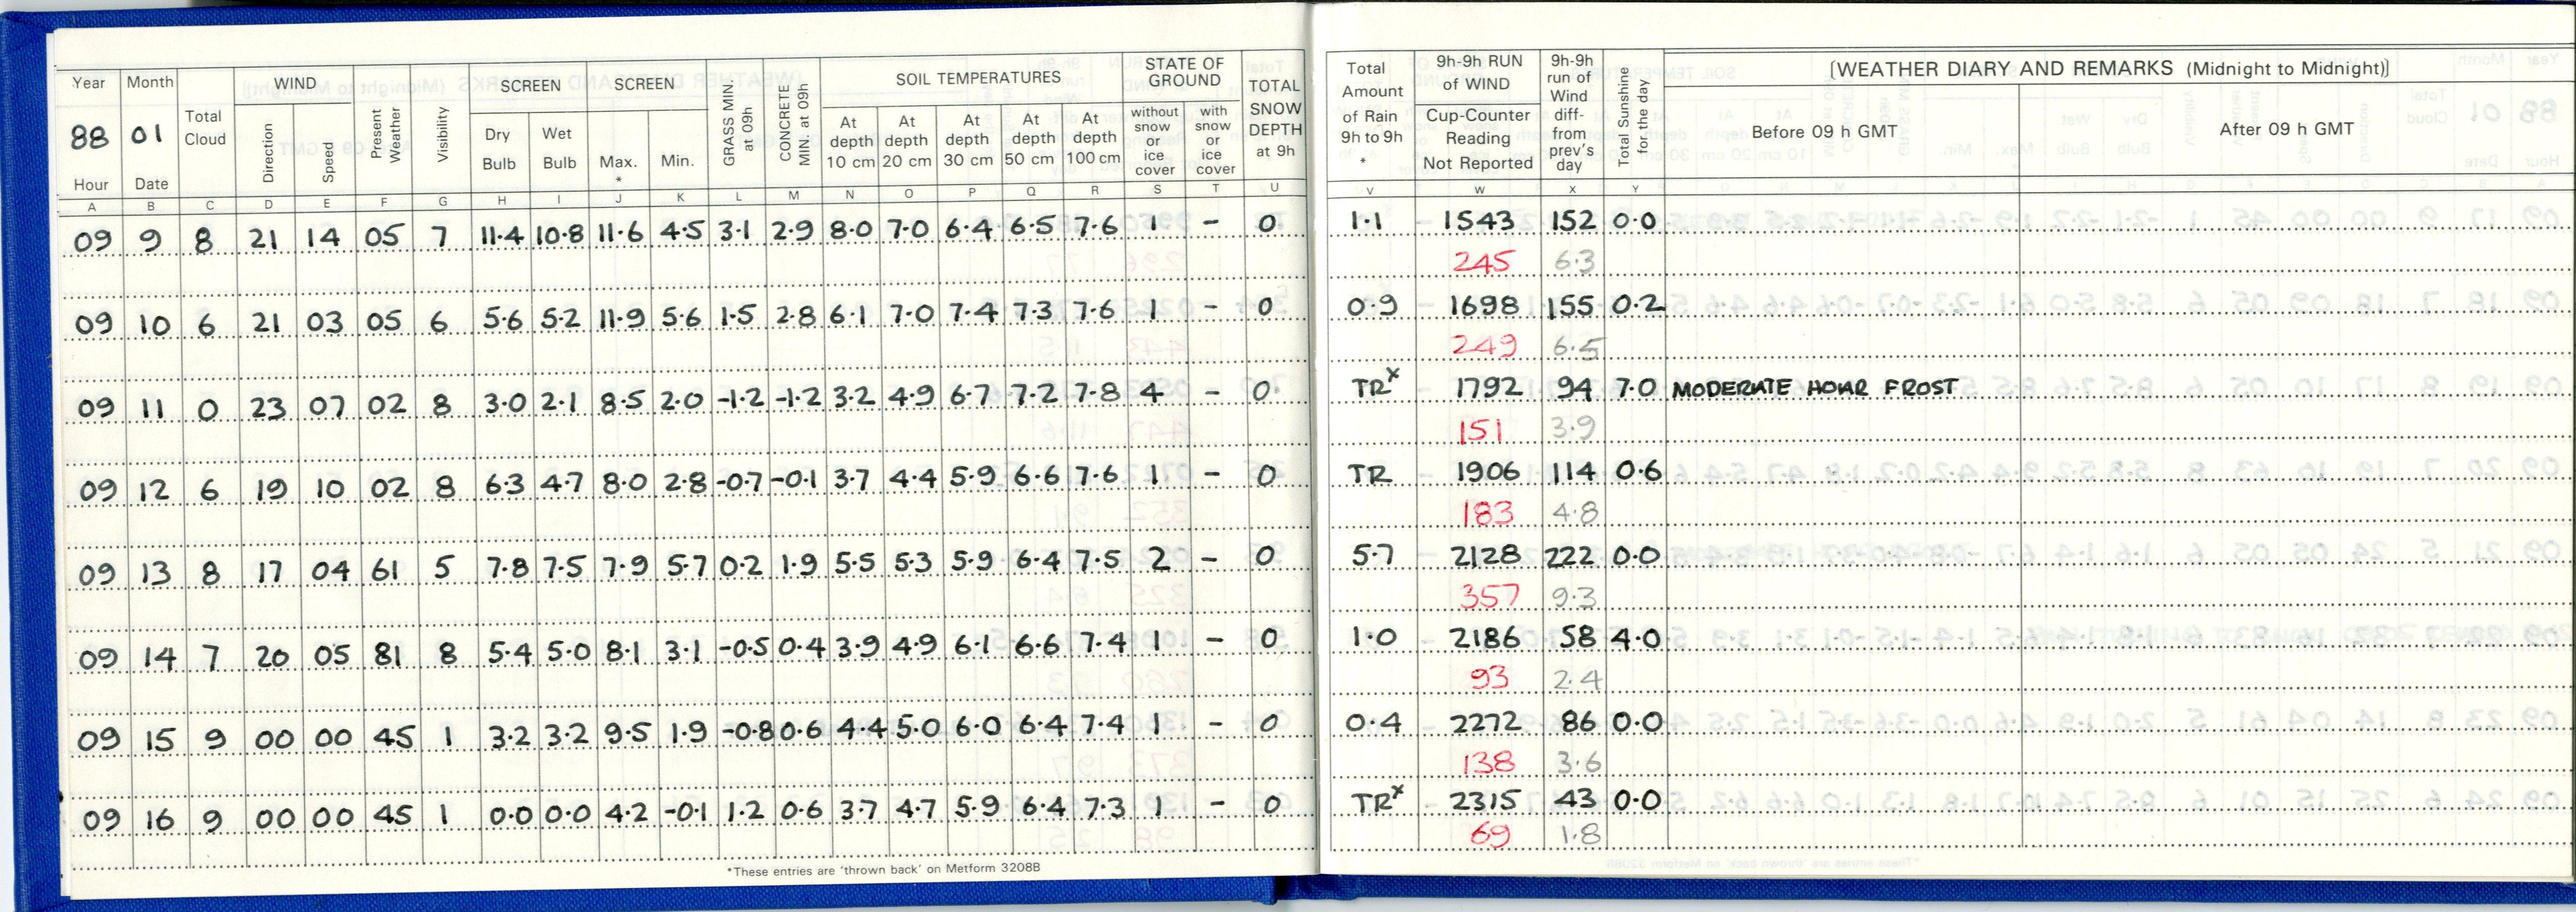 Year Month Total Cloud WIND Present Weather Visibility SCREEN SCREEN GRASS MIN. at 09h CONCRETE MIN. at 09h SOIL TEMPERATURES STATE OF GROUND TOTAL SNOW DEPTH at 9h Total Amount of Rain 9h to 9h * 9h-9h RUN of WIND 9h-9h run of Wind diff- from prev's day Total Sunshine for the day [WEATHER DIARY AND REMARKS (Midnight to Midnight)]
88 01 Direction Speed Dry Bulb Wet Bulb Max. * Min. At depth 10 cm At depth 20 cm At depth 30 cm At depth 50 cm At depth 100 cm without snow or ice cover with snow or ice cover Cup-Counter Reading Not Reported Before 09 h GMT After 09 h GMT
Hour Date
A B C D E F G H I J K L M N O P Q R S T U V W X Y
09 9 8 21 14 05 7 11.4 10.8 11.6 4.5 3.1 2.9 8.0 7.0 6.4 6.5 7.6 1 - 0 1.1 1543 152 0.0
245 6.3
09 10 6 21 03 05 6 5.6 5.2 11.9 5.6 1.5 2.8 6.1 7.0 7.4 7.3 7.6 1 - 0 0.9 1698 155 0.2
249 6.5
09 11 0 23 07 02 8 3.0 2.1 8.5 2.0 -1.2 -1.2 3.2 4.9 6.7 7.2 7.8 4 - 0 TRx 1792 94 7.0 MODERATE HOAR FROST
151 3.9
09 12 6 19 10 02 8 6.3 4.7 8.0 2.8 -0.7 -0.1 3.7 4.4 5.9 6.6 7.6 1 - 0 TR 1906 114 0.6
183 4.8
09 13 8 17 04 61 5 7.8 7.5 7.9 5.7 0.2 1.9 5.5 5.3 5.9 6.4 7.5 2 - 0 5.7 2128 222 0.0
357 9.3
09 14 7 20 05 81 8 5.4 5.0 8.1 3.1 -0.5 0.4 3.9 4.9 6.1 6.6 7.4 1 - 0 1.0 2186 58 4.0
93 2.4
09 15 9 00 00 45 1 3.2 3.2 9.5 1.9 -0.8 0.6 4.4 5.0 6.0 6.4 7.4 1 - 0 0.4 2272 86 0.0
138 3.6
09 16 9 00 00 45 1 0.0 0.0 4.2 -0.1 1.2 0.6 3.7 4.7 5.9 6.4 7.3 1 - 0 TRx 2315 43 0.0
69 1.8
*These entries are 'thrown back' on Metform 3208B